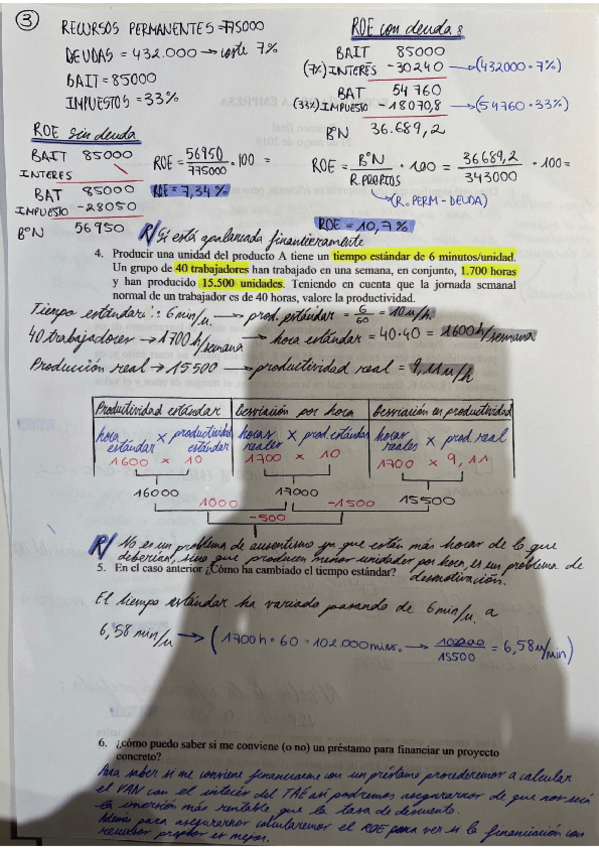 3
RECURSOS PERMANENTES = 775000
DEUDAS = 432.000 → coste 7%
BAIT = 85000
IMPUESTOS = 33%
ROE con deuda:
BAIT 85000
(7%) INTERÉS -30240 → (432000 · 7%)
BAT 54 760
(33%) IMPUESTO -18070,8 → (54760 · 33%)
BºN 36.689,2
ROE = BºN / R.PROPIOS · 100 = 36689,2 / 343000 · 100 =
(R. PERM - DEUDA)
ROE = 10,7%
ROE sin deuda
BAIT 85000
INTERES
BAT 85000
IMPUESTO -28050
BºN 56950
ROE = 56950 / 775000 · 100 =
ROE = 7,34%
R/ Si está apalancada financieramente
4. Producir una unidad del producto A tiene un tiempo estándar de 6 minutos/unidad.
Un grupo de 40 trabajadores han trabajado en una semana, en conjunto, 1.700 horas
y han producido 15.500 unidades. Teniendo en cuenta que la jornada semanal
normal de un trabajador es de 40 horas, valore la productividad.
Tiempo estándar: 6min/u. → prod. estándar = 6/60 = 10u/h
40 trabajadores → 1700h/semana → hora estándar = 40·40 = 1600h/semana
Producción real → 15500 → productividad real = 9,11u/h
Productividad estándar Desviación por hora Desviación en productividad
hora estándar x productividad estándar horas reales x prod. estándar horas reales x prod. real
1600 x 10 1700 x 10 1700 x 9,11
16000 17000 15500
1000 -1500
-500
R/ No es un problema de ausentismo ya que están más horas de lo que
deberían, sino que producen menor unidades por hora, es un problema de
desmotivación.
5. En el caso anterior ¿Cómo ha cambiado el tiempo estándar?
El tiempo estándar ha variado pasando de 6min/u. a
6,58 min/u → (1700h · 60 = 102.000mins. → 102000 / 15500 = 6,58u/min)
6. ¿cómo puedo saber si me conviene (o no) un préstamo para financiar un proyecto
concreto?
Para saber si me conviene financiarme con un préstamo procederemos a calcular
el VAN con el interés del TAE así podremos asegurarnos de que nos será
la inversión más rentable que la tasa de descuento.
Además para asegurarnos calcularemos el ROE para ver si la financiación con
recursos propios es mejor.